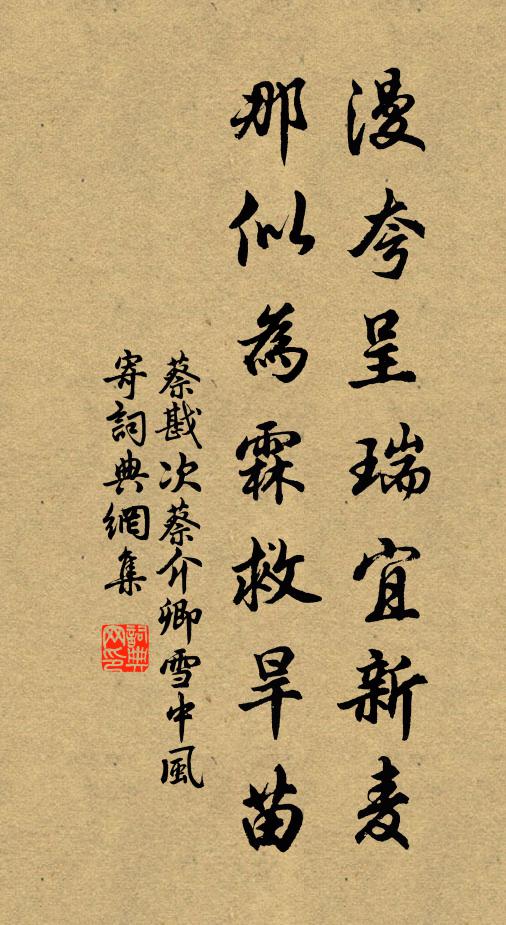 漫夸呈瑞宜新麦
那似為霖救旱苗
蔡戡次蔡介卿雪中風
寄詞典網集
詞典网印